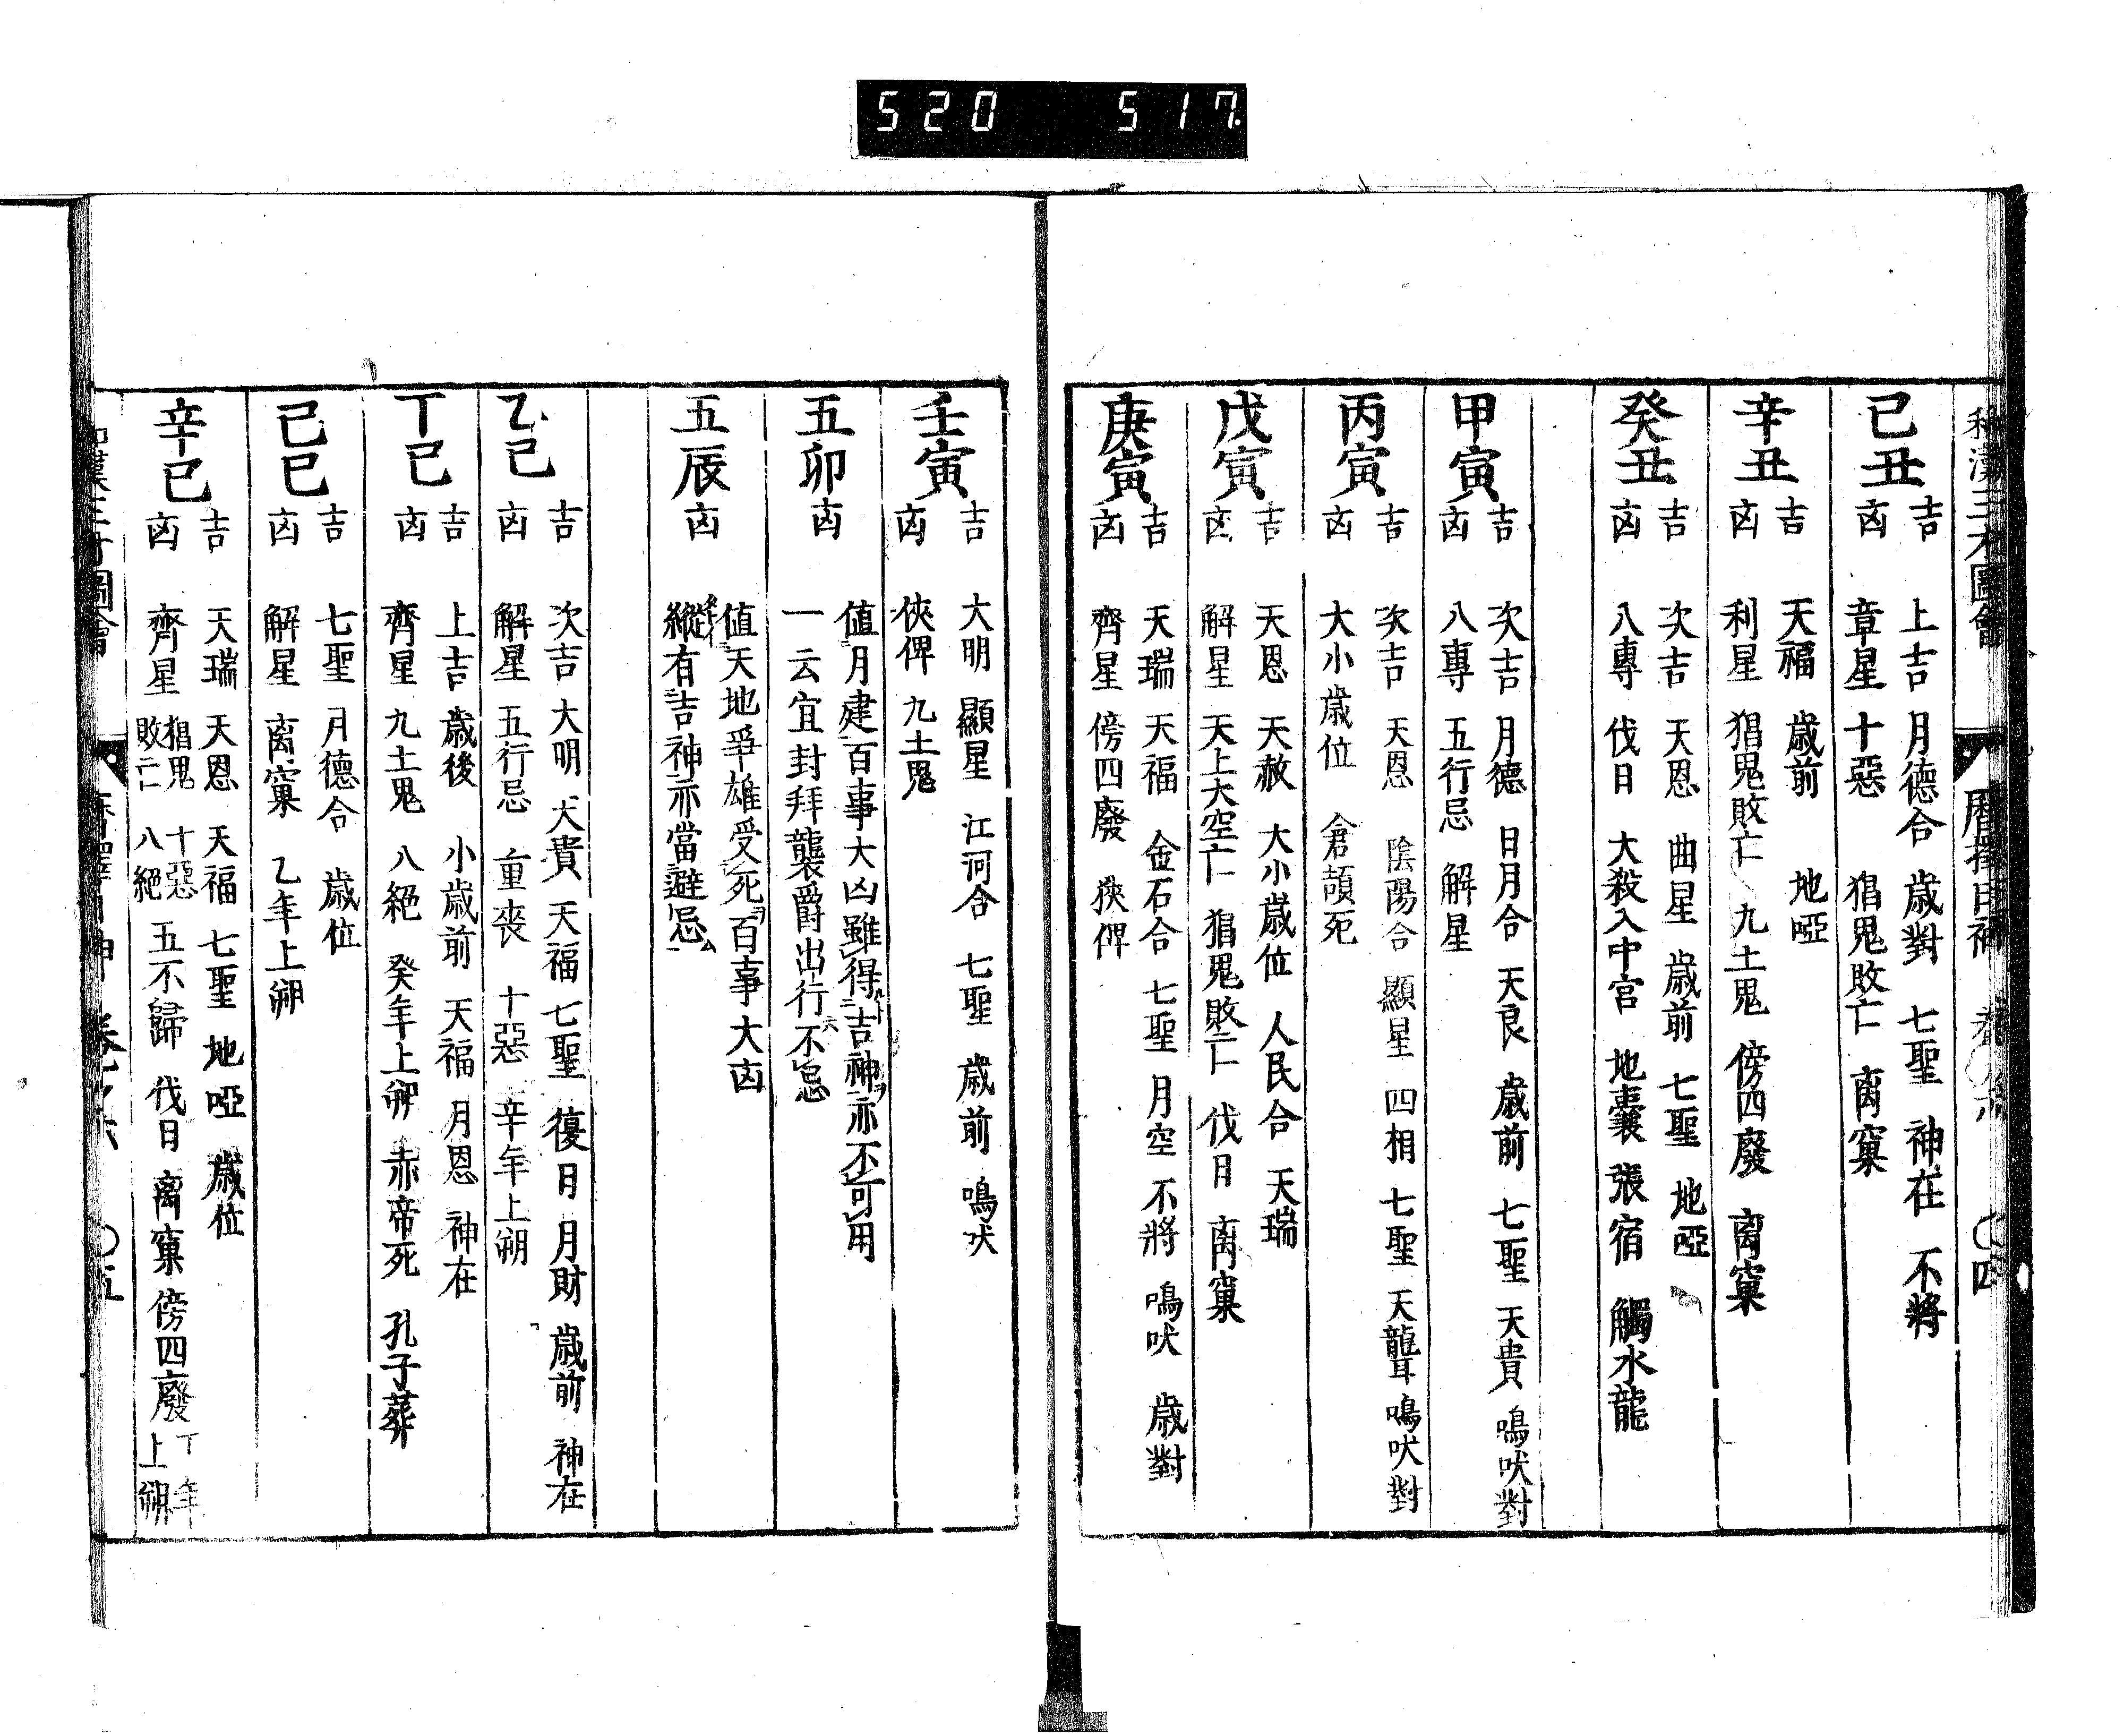 520 517.
和漢三才圖會 曆擇日神 卷之六 〇四
己丑
吉 上吉 月德合 歳對 七聖 神在 不將
凶 章星 十惡 猖鬼敗亡 离窠
辛丑
吉 天福 歳前 地啞
凶 利星 猖鬼敗亡 九土鬼 傍四廢 离窠
癸丑
吉 次吉 天恩 曲星 歳前 七聖 地啞
凶 八專 伐日 大殺入中宮 地囊 張宿 觸水龍
甲寅
吉 次吉 月德 日月合 天良 歳前 七聖 天貴 鳴吠對
凶 八專 五行忌 解星
丙寅
吉 次吉 天恩 陰陽合 顯星 四相 七聖 天聾 鳴吠對
凶 大小歳位 倉頡死
戊寅
吉 天恩 天赦 大小歳位 人民合 天瑞
凶 解星 天上大空亡 猖鬼敗亡 伐日 离窠
庚寅
吉 天瑞 天福 金石合 七聖 月空 不將 鳴吠 歳對
凶 齊星 傍四廢 狹俾
壬寅
吉 大明 顯星 江河合 七聖 歳前 鳴吠
凶 俠俾 九土鬼
五卯 凶
値月建百事大凶雖得吉神亦不可用
一云宜封拜襲爵出行不忌
五辰 凶
値天地爭雄受死百事大凶
縱有吉神亦當避忌
乙巳
吉 次吉 大明 天貴 天福 七聖 復日 月財 歳前 神在
凶 解星 五行忌 重喪 十惡 辛年上朔
丁巳
吉 上吉 歳後 小歳前 天福 月恩 神在
凶 齊星 九土鬼 八絕 癸年上朔 赤帝死 孔子葬
己巳
吉 七聖 月德合 歳位
凶 解星 离窠 乙年上朔
辛巳
吉 天瑞 天恩 天福 七聖 地啞 歳位
凶 齊星 猖鬼敗亡 十惡 八絕 五不歸 伐日 离窠 傍四廢 丁年上朔
和漢三才圖會 曆擇日神 卷之六 〇五